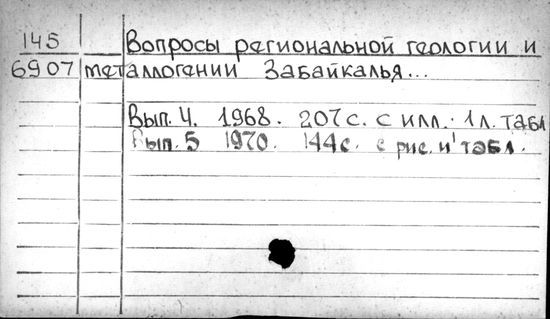 145 Вопросы региональной геологии и
6907 металлогении Забайкалья...
Вып. 4. 1968. 207 с. с илл. 1 л. табл
Вып. 5 1970. 144 с. с рис. и табл.